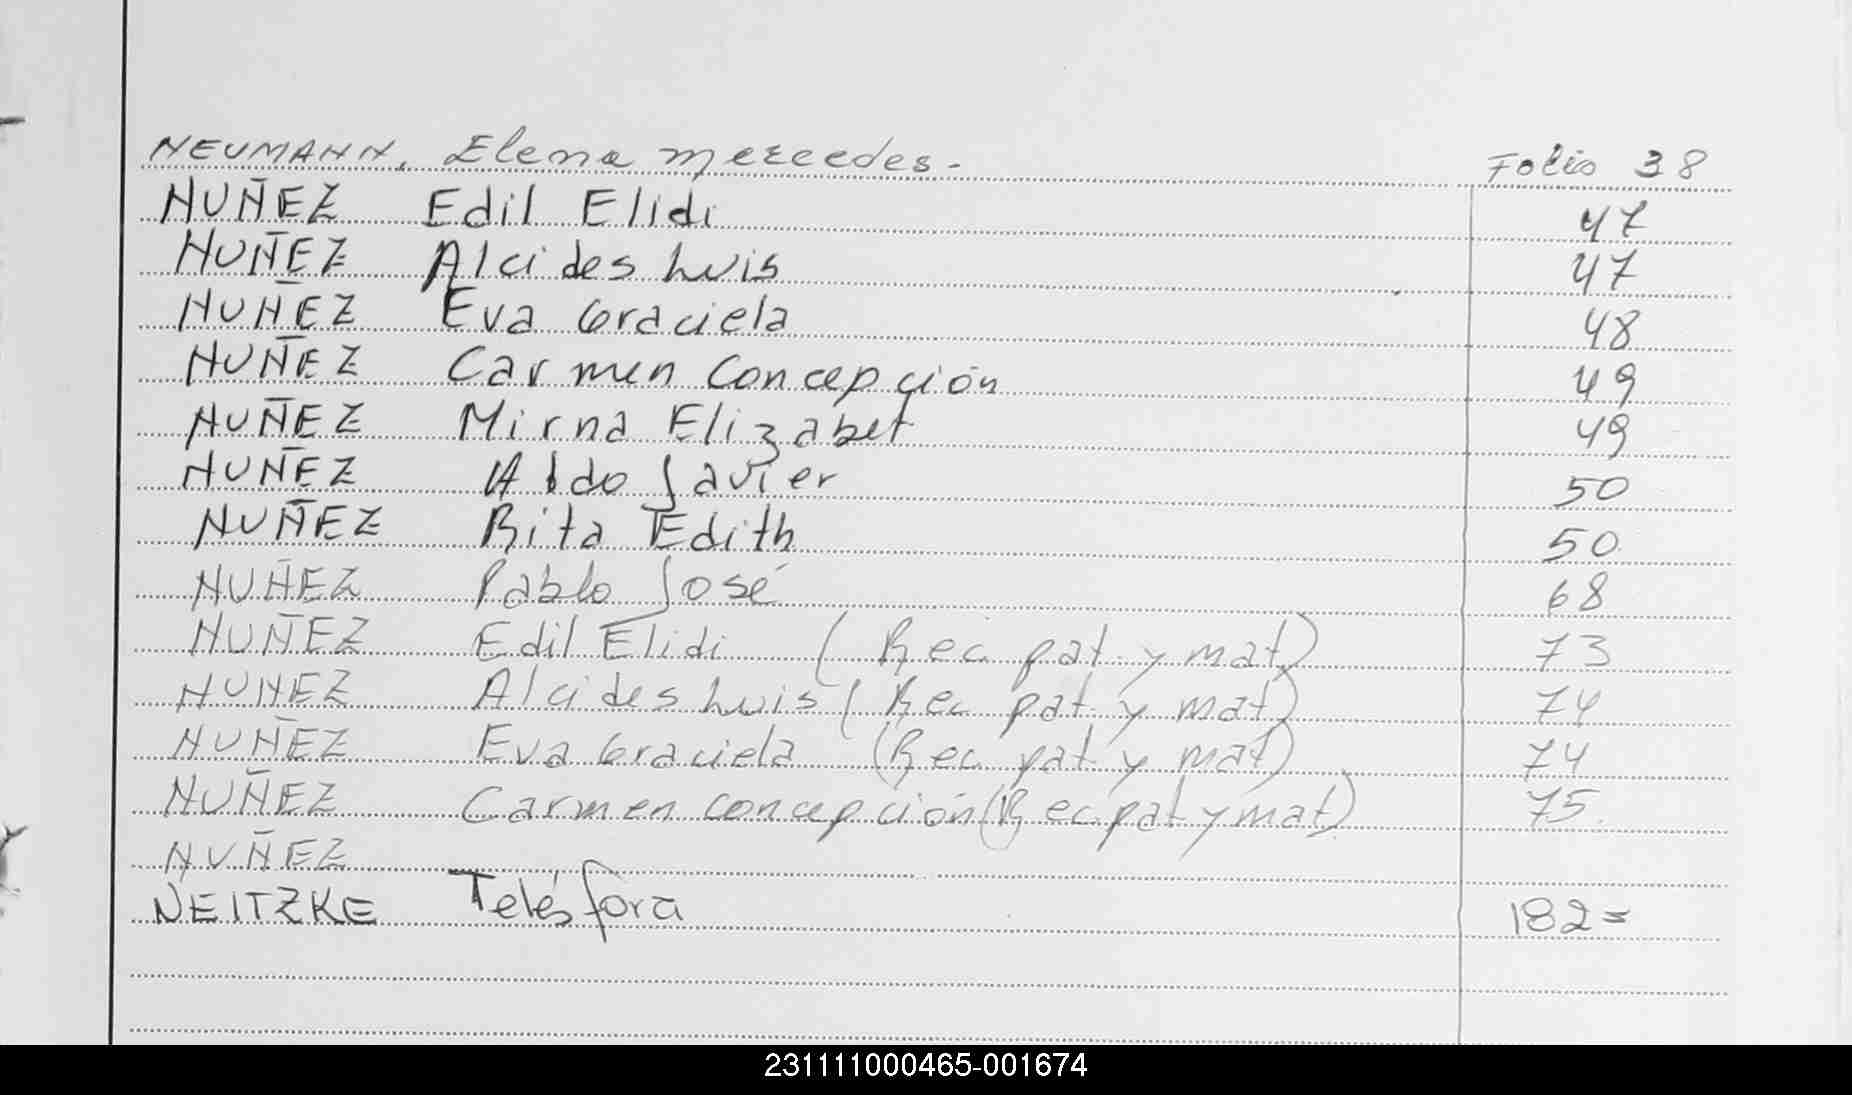 NEUMANN. Elena mercedes. Folio 38
NUÑEZ Edil Elidi 47
NUÑEZ Alcides Luis 47
NUÑEZ Eva Graciela 48
NUÑEZ Carmen Concepción 49
NUÑEZ Mirna Elizabet 49
NUÑEZ Aldo Javier 50
NUÑEZ Rita Edith 50
NUÑEZ Pablo José 68
NUÑEZ Edil Elidi (Rec pat y mat) 73
NUÑEZ Alcides Luis (Rec pat y mat) 74
NUÑEZ Eva Graciela (Rec pat y mat) 74
NUÑEZ Carmen concepción (Rec pat y mat) 75
NUÑEZ
NEITZKE Telésfora 182=
231111000465-001674